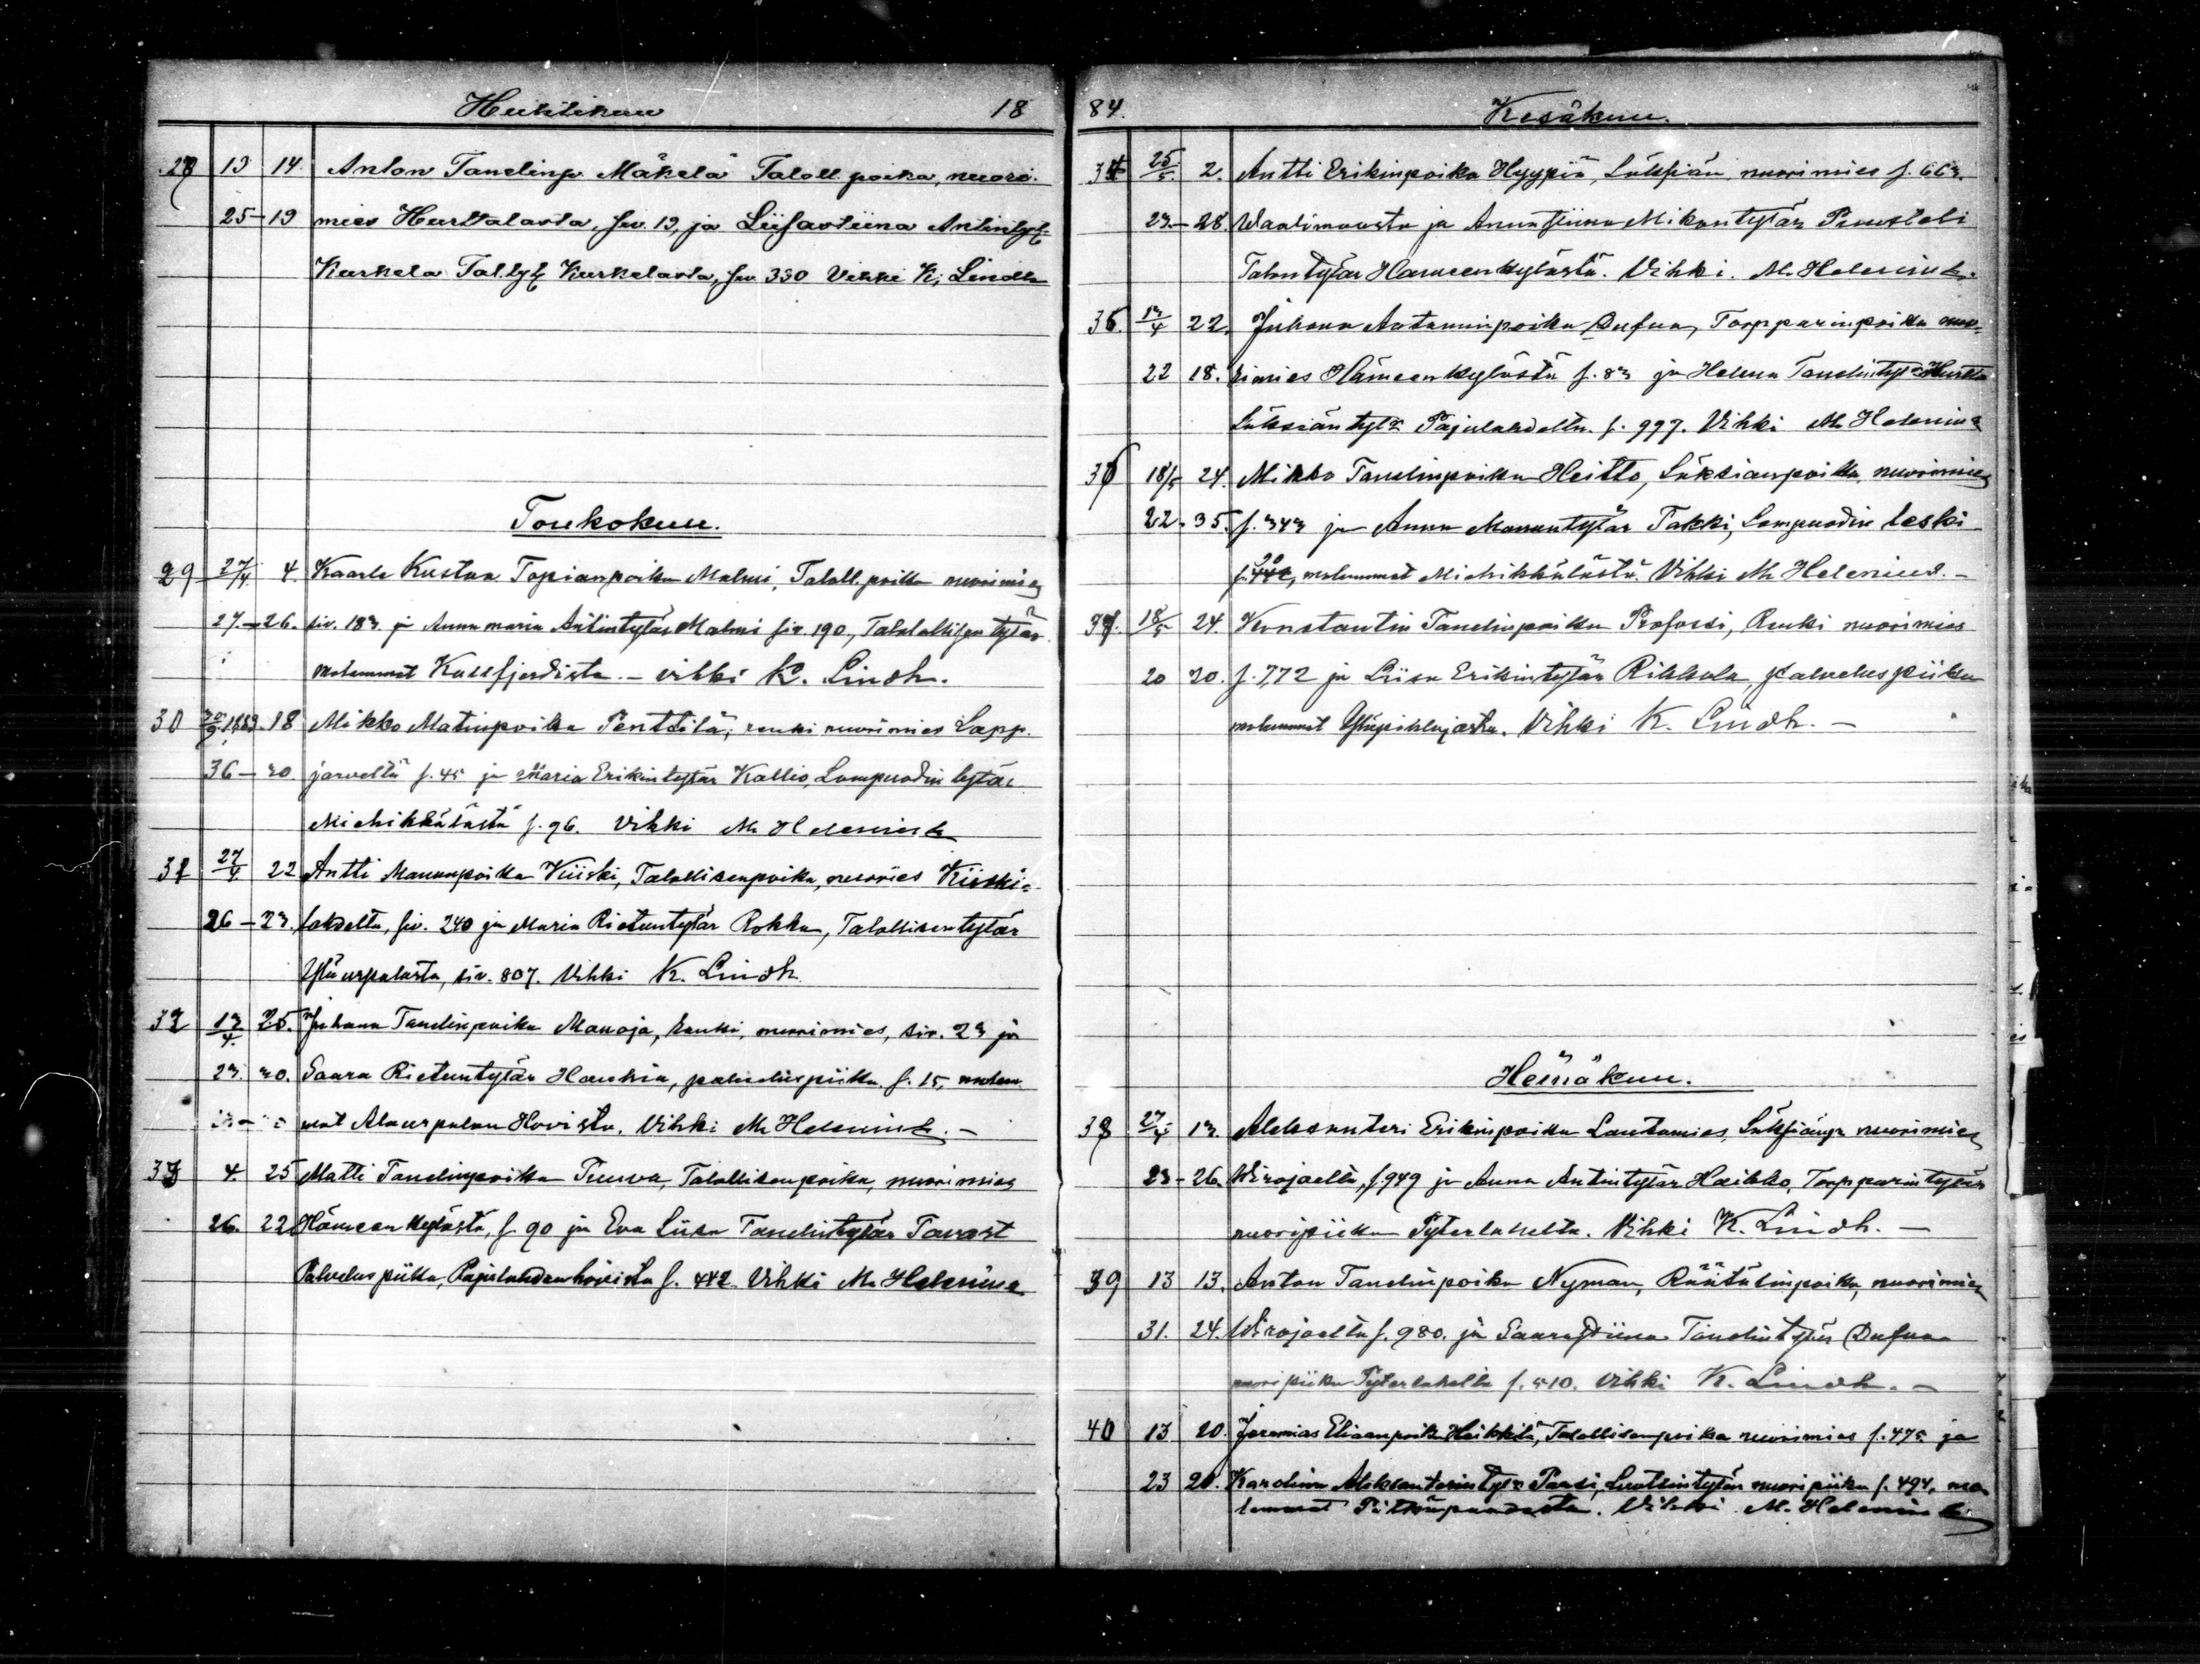 Huhtikuu 18
28 13 14. Anton Tanelinp. Mäkelä Taloll. poika, nuori-
25-19 mies Hurttalasta, siv. 19, ja Liisastiina Antintyt.
Kurkela Tal. tyt. Kurkelasta, siv. 330 Vihki K. Lindh
Toukokuu.
29 27/4. 4. Kaarle Kustaa Topianpoika Malmi, Taloll. poika nuorimies
27.-26. siv. 183 ja Annamaria Antintytär Malmi siv. 190, Talollisen tytär
molemmat Kallfjerdistä. - vihki K. Lindh.
30 1883. 18 Mikko Matinpoika Penttilä, renki nuorimies Lapp-
36-30 jarveltä s. 45 ja Maria Erikintytär Kallio, Lampuodin tytär
Miehikkälästä s. 96. Vihki M. Helenius
31 27/4 22 Antti Mananpoika Kiiski, Talollisenpoika, nuories Kiiski-
26-23. lahdelta, siv. 240 ja Maria Rietuntytär Rokka, Talollisentytär
Yläurpalasta, siv. 807. Vihki K. Lindh
32 13/4. 25. Juhana Tanelinpoika Manoja, renki, nuorimies, siv. 23 ja
23. 30. Saara Rietuntytär Haukia, palveluspiika, s. 15, molem-
mat Alaurpalan Hovista. Vihki M. Helenius. -
33 4. 25 Matti Tanelinpoika Tuuva, Talollisenpoika, nuorimies
26. 22 Hämeenkylästä, s. 90 ja Eva Liisa Tanelintytär Tavast
Palveluspiika, Pajulahdenhovista s. 442. Vihki M. Helenius
84. Kesäkuu.
34 25/5. 2. Antti Erikinpoika Hyypiä, Läksiän nuorimies s. 663.
23.-28. Waalimaasta ja Annastiina Mikontytär Pruusteli
Talontytär Hämeenkylästä. Vihki. M. Helenius.
35. 13/4 22. Juhana Aataminpoika Dufva, Torpparinpoika nuo-
22 18. rimies Hämeenkylästä s. 83 ja Helena Tanelintytr Hurtta
Läksiäntytr Pajulahdelta. s. 997. Vihki M. Helenius
36 18/5 24. Mikko Tanelinpoika Heitto, Läksianpoika, nuorimies
22. 35. s. 343 ja Anna Manuntytär Takki, Lampuodin leski
molemmat Miehikkälästä. Vihki M. Helenius. -
37. 18/5 24. Konstantin Tanelinpoika Profossi, Renki nuorimies
20 20. s. 772 ja Liisa Erikintytär Rikkola, palveluspiika
molemmat Yläpihlajasta. Vihki K. Lindh. -
Heinäkuu.
38 13. Aleksanteri Erikinpoika Lautamies, Läksiänp. nuorimies
23-26. Wirojoelta, s. 949 ja Anna Antintytär Haikko, Torpparintytär
nuoripiika Pyterlahelta. Vihki K. Lindh. -
39 13 13. Anton Tanelinpoika Nyman, Räätälinpoika, nuorimies
31. 24. Wirojoelta s. 980. ja Saarastiina Tanelintytär Dufva
nuoripiika Pyterlahelta s. 510. Vihki K. Lindh. -
40 13 20. Jeremias Eliaanpoika Heikkilä, Talollisenpoika nuorimies s. 475 ja
23 20. Karolina Aleksanterintytr Parsi, Luotsintytär nuoripiika s. 494, mo-
lemmat Pitkäpaadesta. Vihki M. Helenius